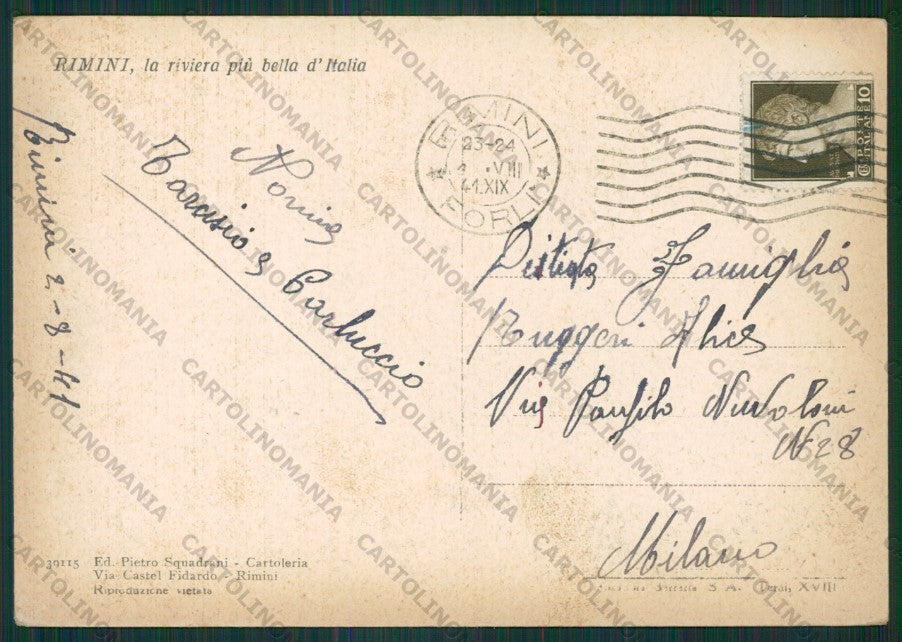 RIMINI, la riviera più bella d'Italia
Rimini 2-8-41
Norina
Tarcisio e Carluccio
RIMINI
23-24
VIII
41.XIX
FORLI
POSTE ITALIANE
10
Famiglia
Ruggeri Alice
Via Panfilo Nuvoloni
N 28
Milano
39115 Ed. Pietro Squadrani - Cartoleria
Via Castel Fidardo - Rimini
Riproduzione vietata
S. A. XVIII
CARTOLINOMANIA